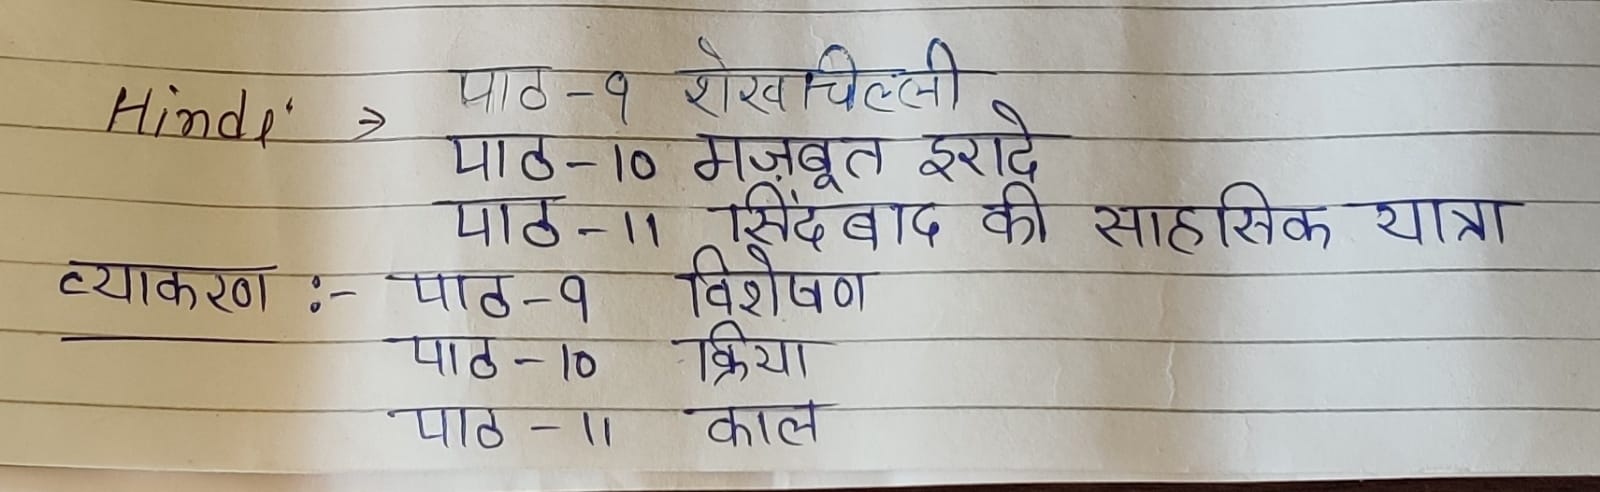 Hindi → पाठ - 9 शेखचिल्ली
पाठ - 10 मज़बूत इरादे
पाठ - 11 सिंदबाद की साहसिक यात्रा
व्याकरण :- पाठ - 9 विशेषण
पाठ - 10 क्रिया
पाठ - 11 काल